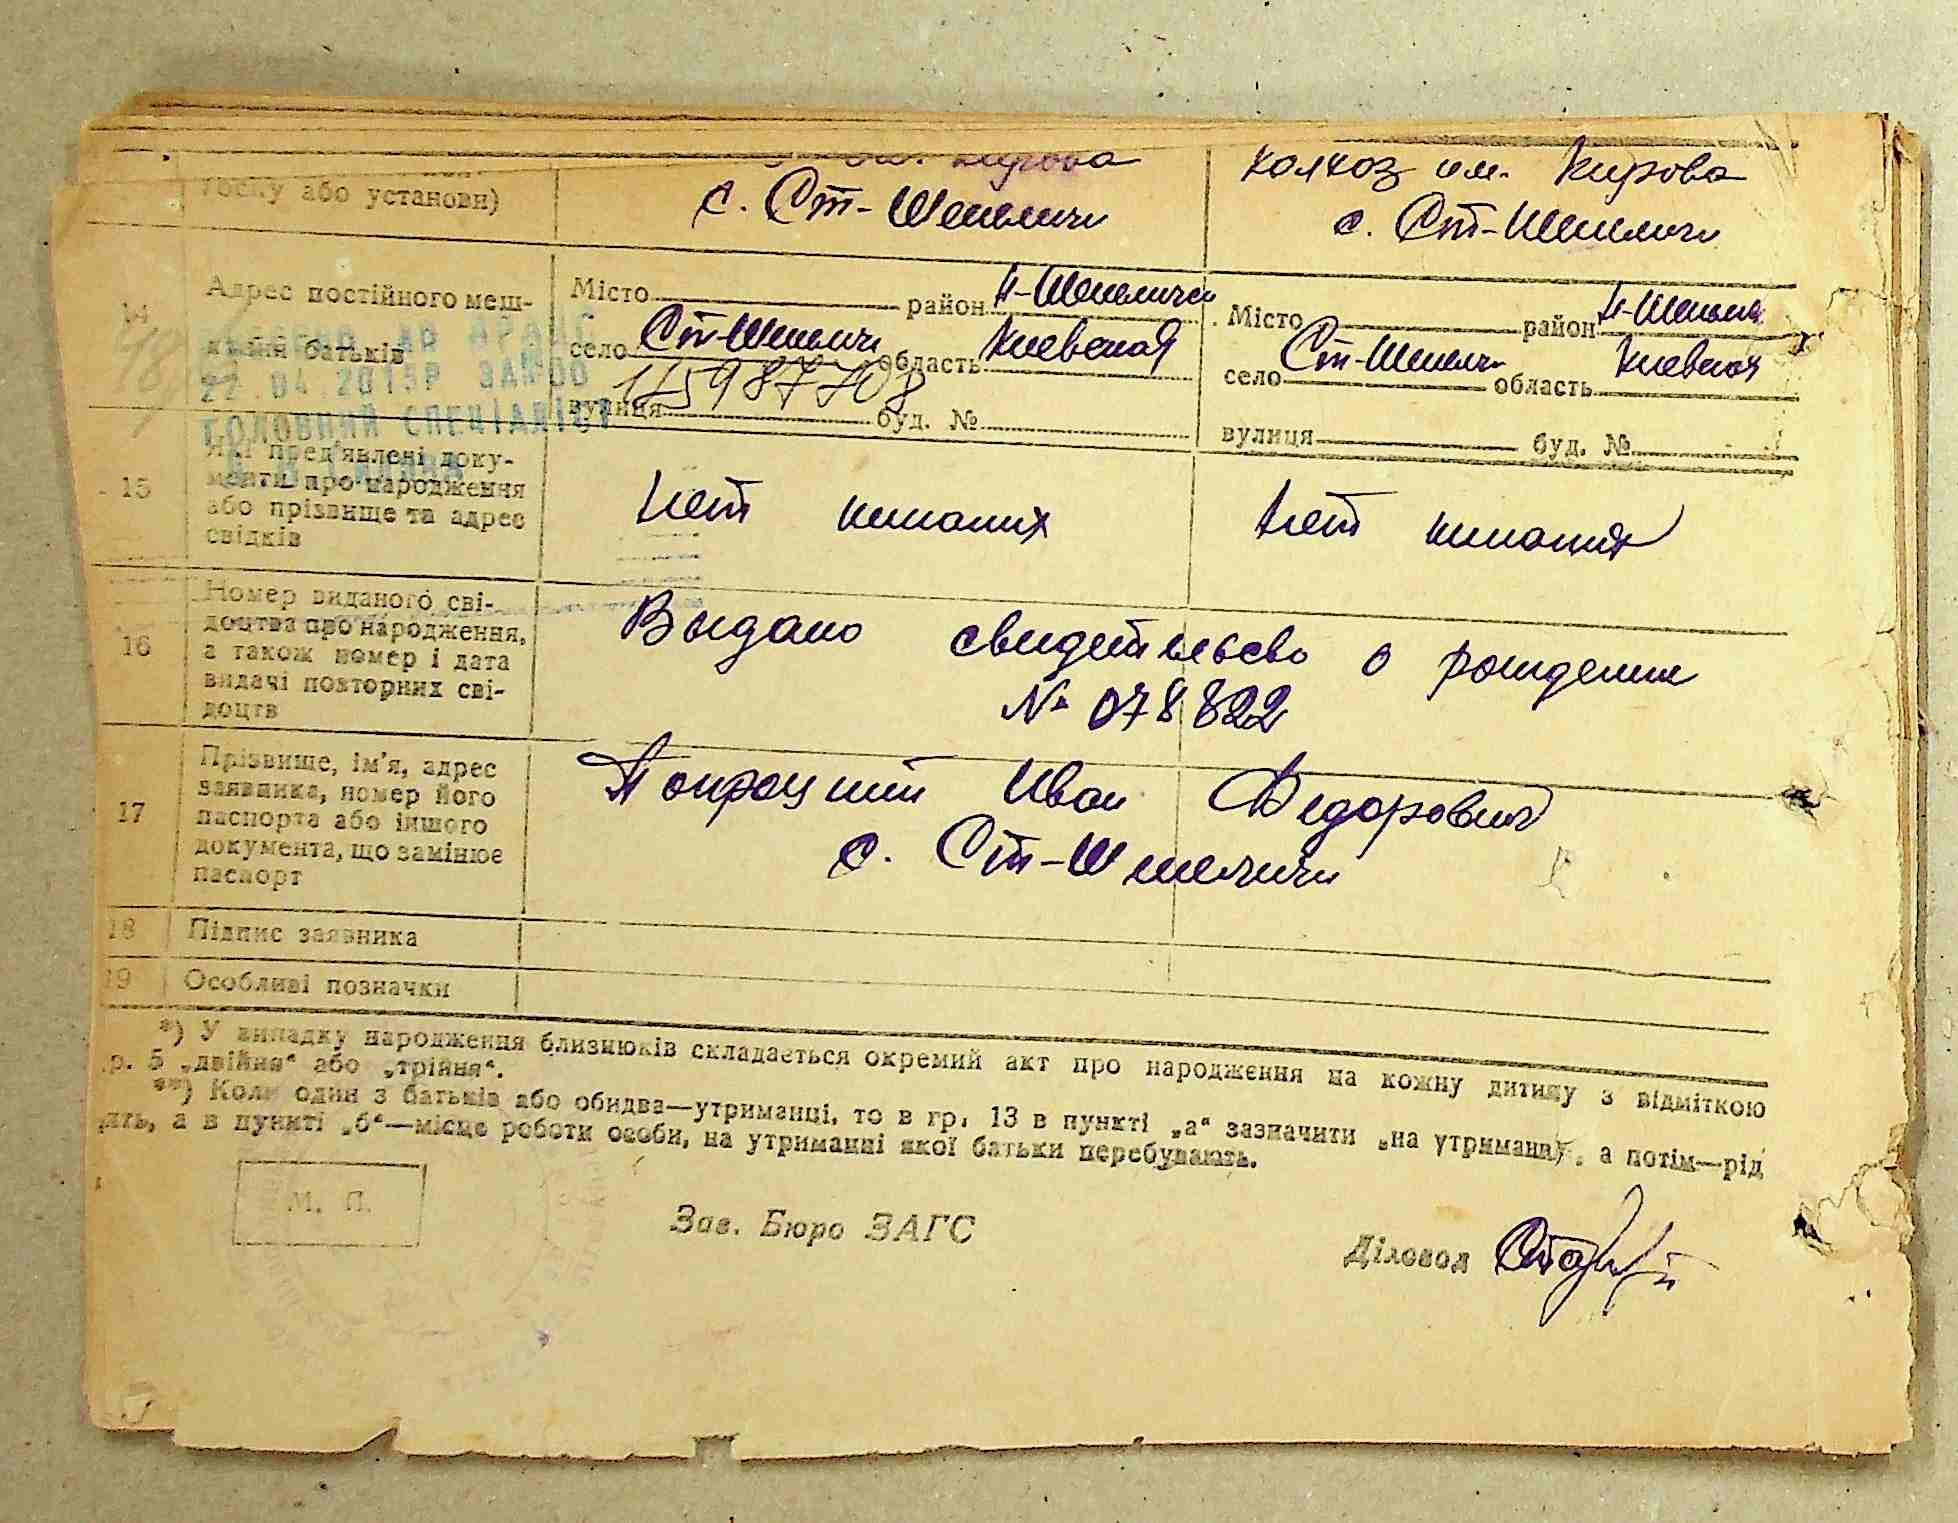 им. Кирова колхоз им. Кирова
госпу або установи) с. Ст-Шепеличи с. Ст-Шепеличи
14 Адрес постійного меш-
кання батьків
Місто район Н-Шепеличи
село Ст-Шепеличи область Киевская
вулиця буд. №
115987708
Місто район Н-Шепели
село Ст-Шепеличи область Киевская
вулиця буд. №
22.04.2015Р
ГОЛОВНИЙ СПЕЦІАЛІСТ
15 Які пред'явлені доку-
менти про народження
або прізвище та адрес
свідків
Нет никаких Нет никаких
16 Номер виданого сві-
доцтва про народження,
а також номер і дата
видачі повторних сві-
доцтв
Выдано свидетельсво о рождении
№ 078822
17 Прізвище, ім'я, адрес
заявника, номер його
паспорта або іншого
документа, що замінює
паспорт
Иван Федорович
с. Ст-Шепеличи
18 Підпис заявника
19 Особливі позначки
*) У випадку народження близнюків складається окремий акт про народження на кожну дитину з відміткою
гр. 5 „двійня“ або „трійня“.
**) Коли один з батьків або обидва—утриманці, то в гр. 13 в пункті „а“ зазначити „на утриманні“, а потім—рід
а в пункті „б“—місце роботи особи, на утриманні якої батьки перебувають.
М. П.
Зав. Бюро ЗАГС
Діловод